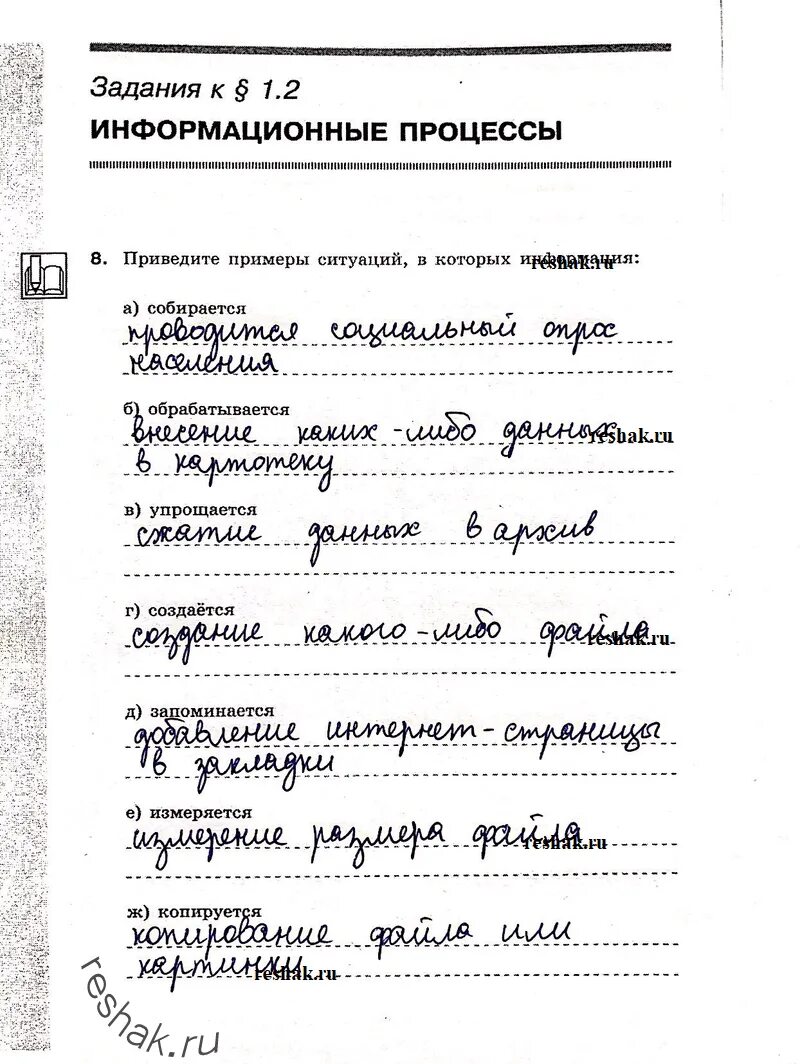 Задания к § 1.2
ИНФОРМАЦИОННЫЕ ПРОЦЕССЫ
8. Приведите примеры ситуаций, в которых информация:
reshak.ru
а) собирается
проводится социальный опрос
населения
б) обрабатывается
внесение каких-либо данных
reshak.ru
в картотеку
в) упрощается
сжатие данных в архив
г) создаётся
создание какого-либо файла
reshak.ru
д) запоминается
добавление интернет-страницы
в закладки
е) измеряется
измерение размера файла
reshak.ru
ж) копируется
копирование файла или
картинки
reshak.ru
reshak.ru